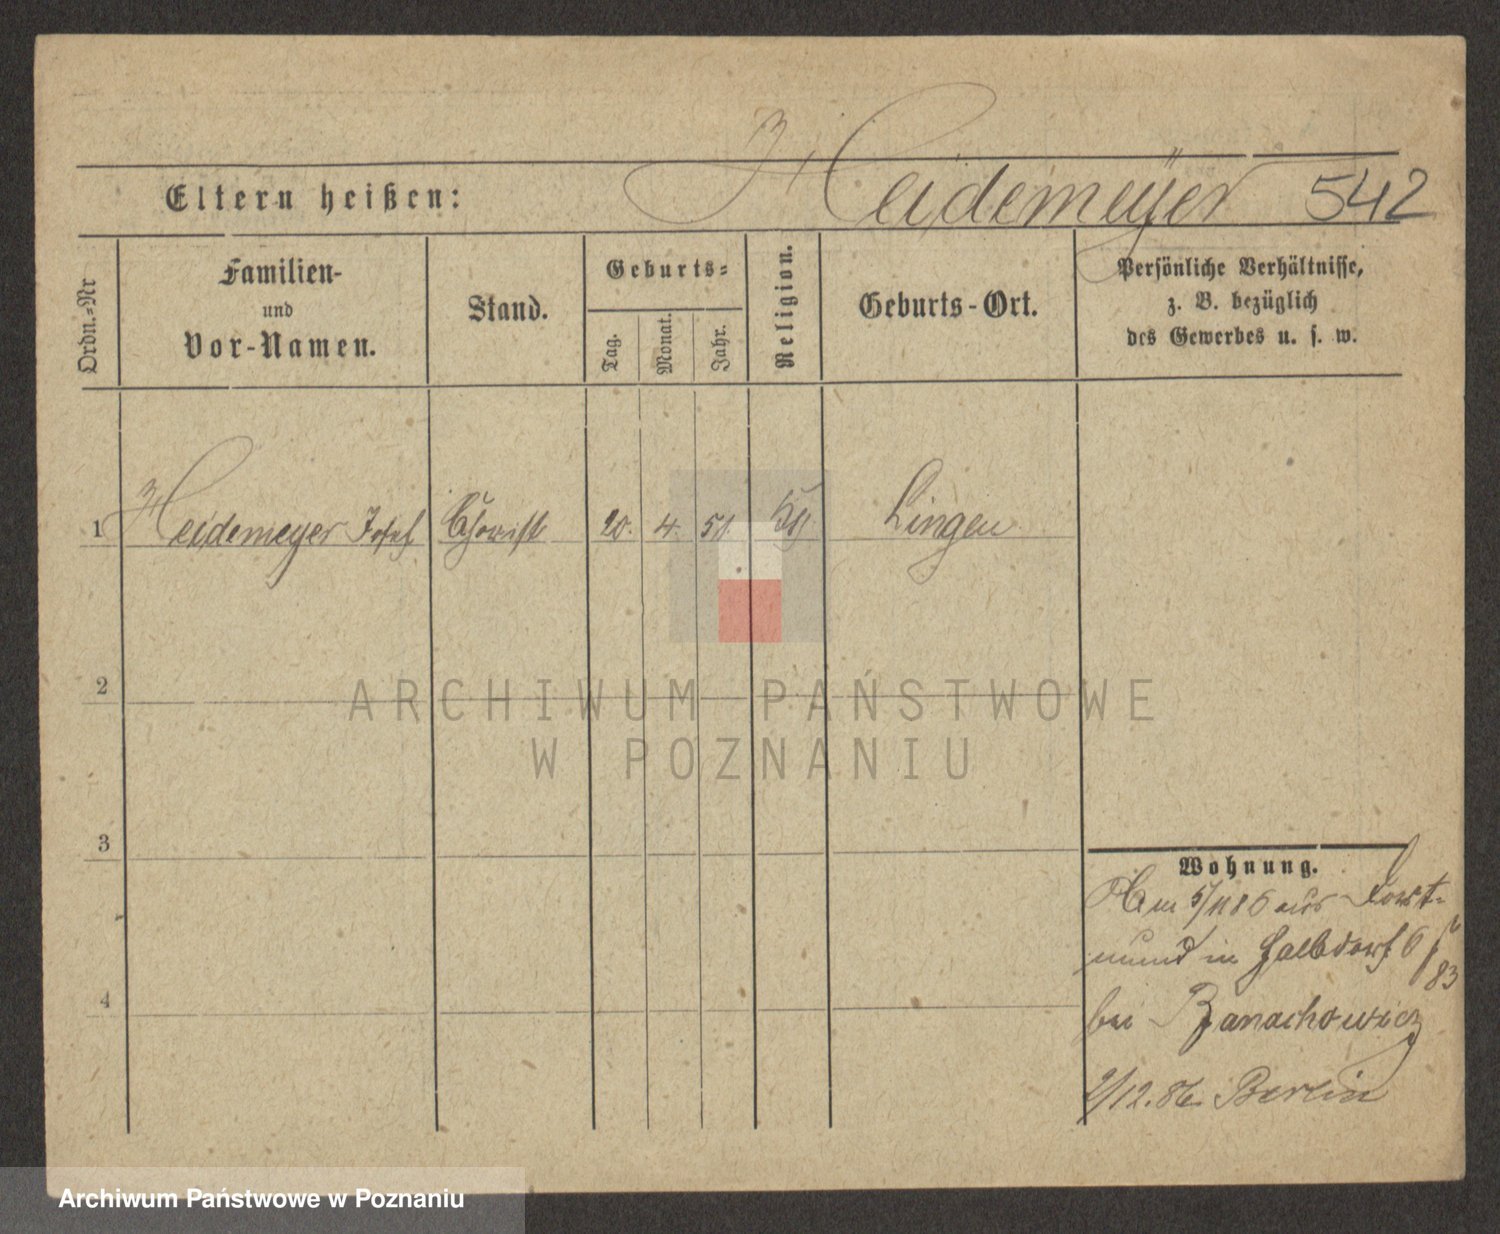 Heidemeÿer 542
Eltern heißen:
Ordn.-Nr
Familien-
und
Vor-Namen.
Stand.
Geburts-
Tag.
Monat.
Jahr.
Religion.
Geburts-Ort.
Persönliche Verhältnisse,
z. B. bezüglich
des Gewerbes u. s. w.
1 Heidemeyer Josef 20. 4. 51. Lingen
2
3
4
ARCHIWUM PAŃSTWOWE
W POZNANIU
Wohnung.
Am 5/11 86 aus Dort-
mund in
bei Banachowicz
2/12.86 Berlin
Archiwum Państwowe w Poznaniu